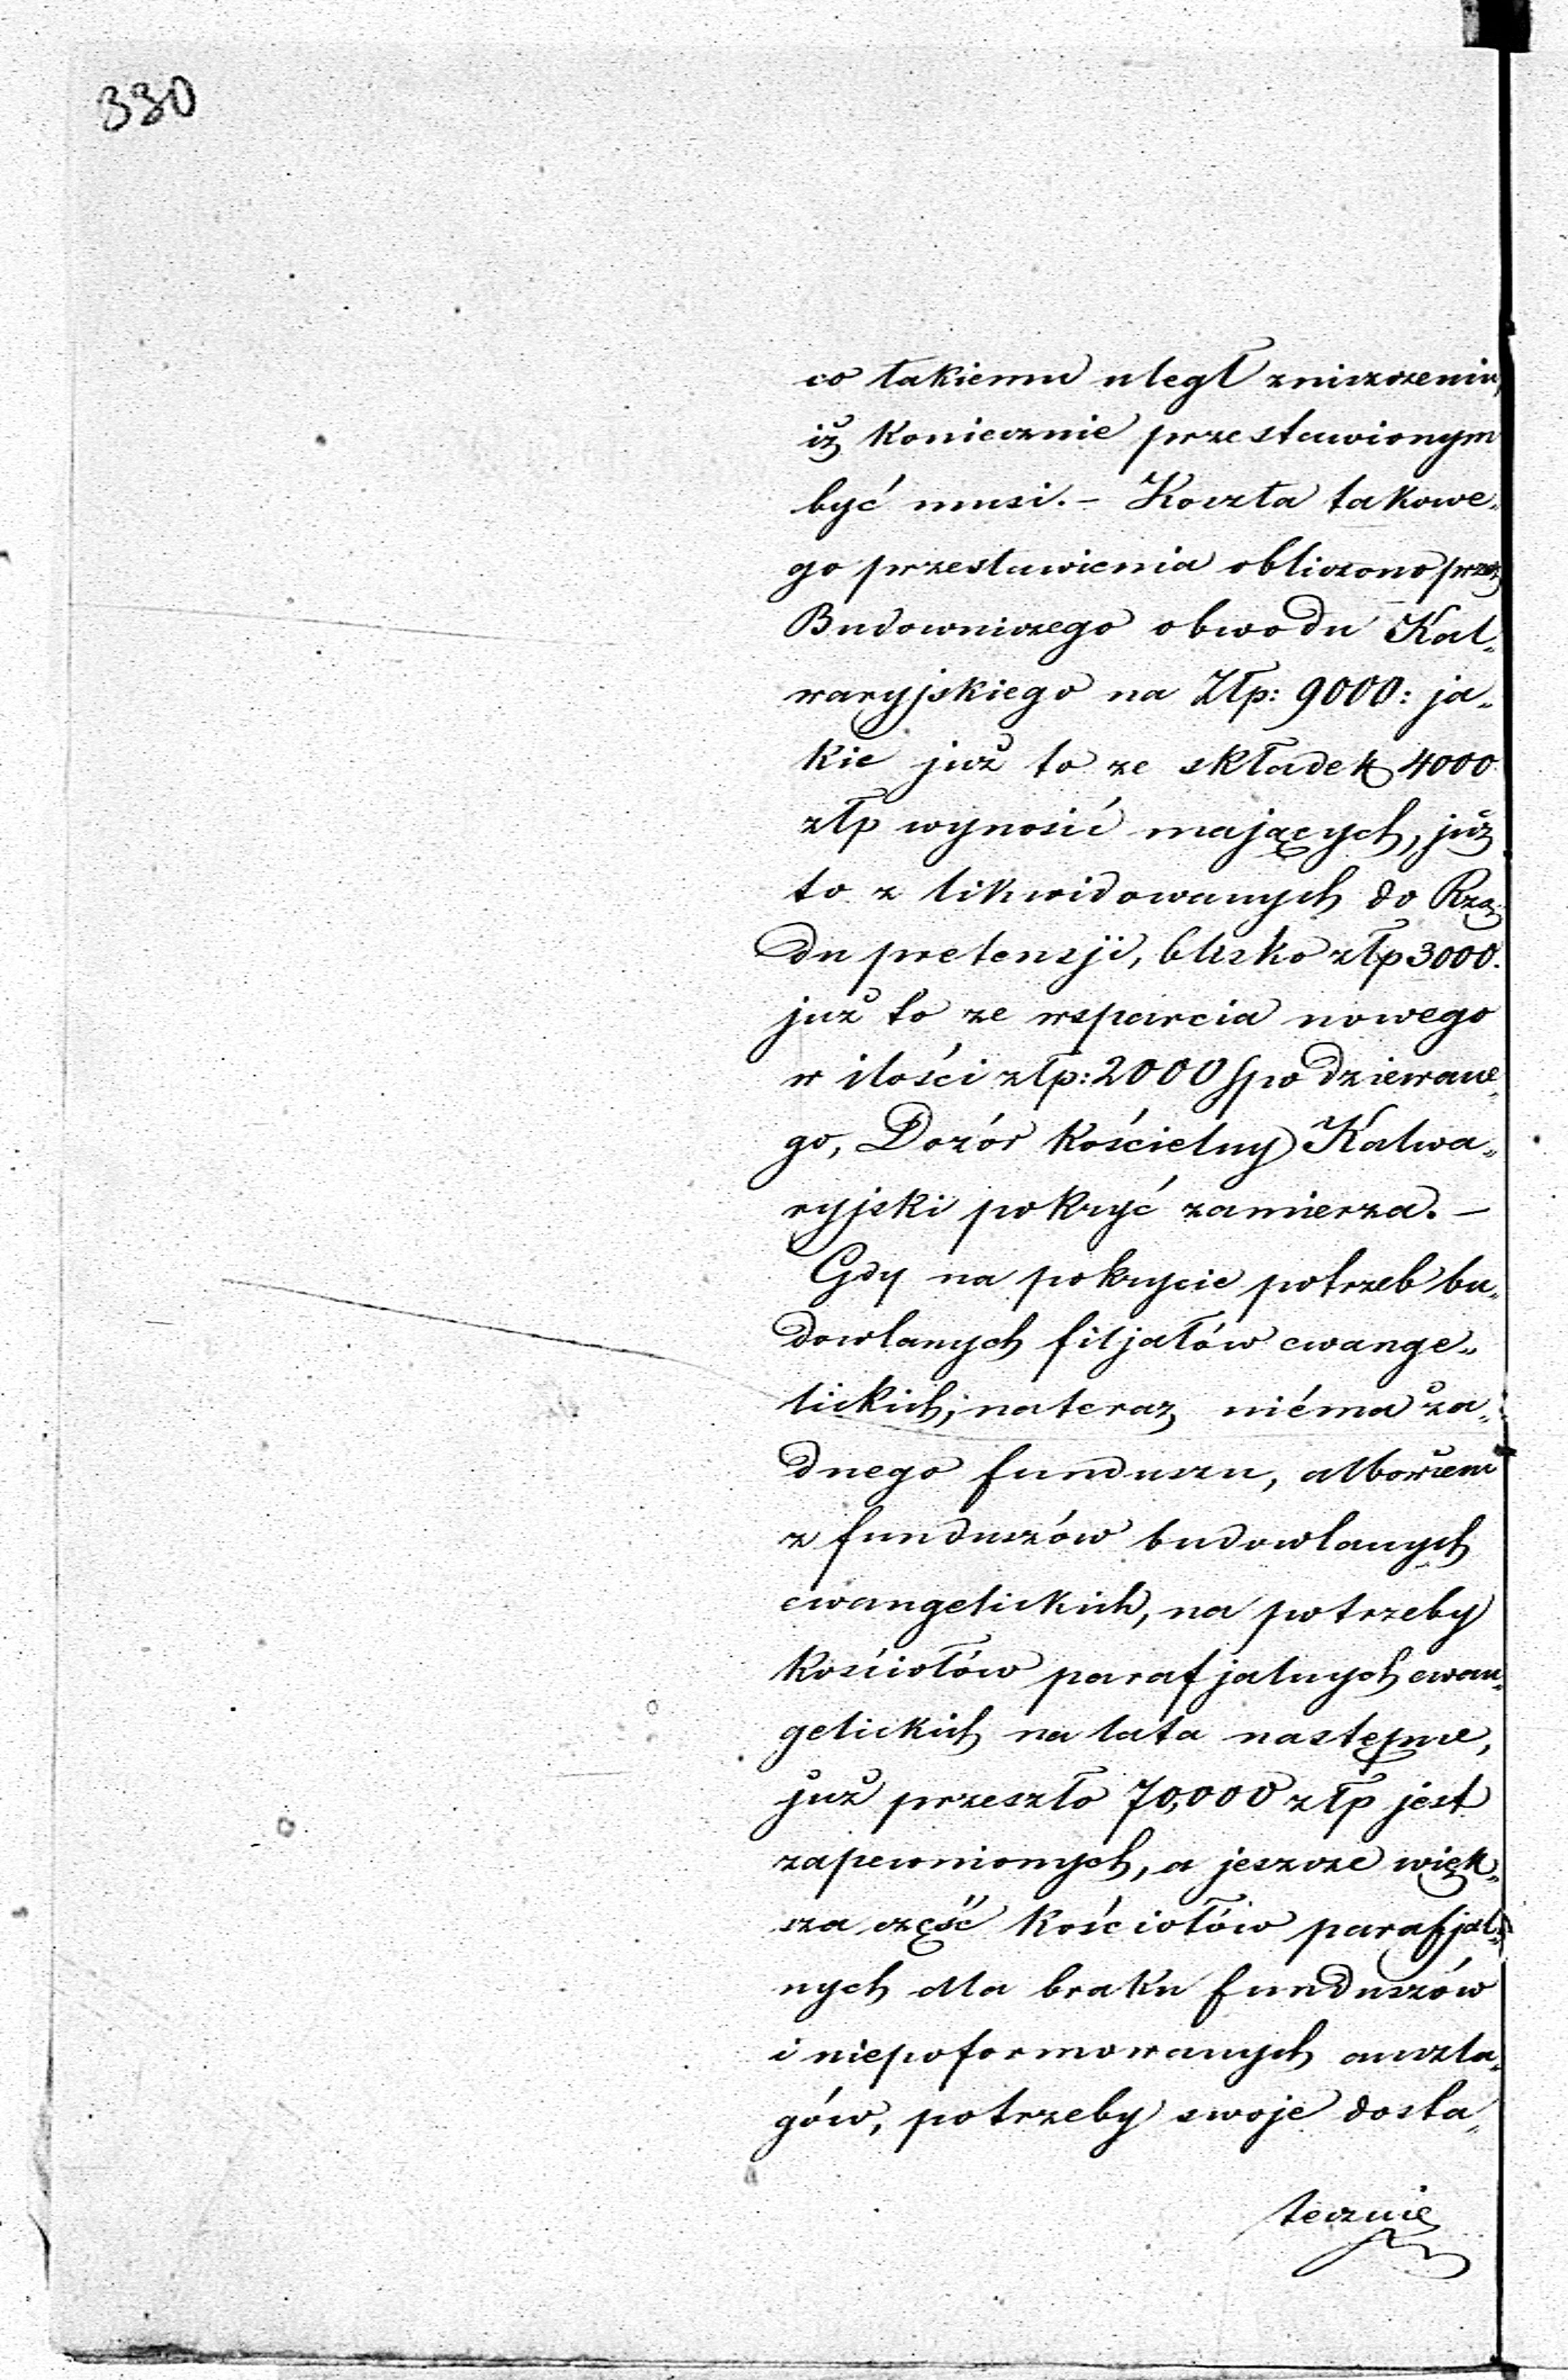 330
co takiemu uległ zniszczeniu,
iż koniecznie przestawionym
być musi. – Koszta takowe„
go przestawienia obliczono przez
Budowniczego obwodu Kal„
waryjskiego na Złp: 9000: ja„
kie już to ze składek 4000
złp wynosić mających, już
to z likwidowanych do Rzą„
du pretensji, blisko złp 3000.
już to ze wsparcia nowego
w ilości złp: 2000 spodziewane„
go, Dozór kościelny Kalwa„
ryjski pokryć zamierza. –
Gdy na pokrycie potrzeb bu„
dowlanych filjałów ewange„
lickich, nateraz niéma ża„
dnego funduszu, albowiem
z funduszów budowlanych
ewangelickich, na potrzeby
kościołów parafjalnych ewan„
gelickich na lata następne,
już przeszło 70,000 złp jest
zapewnionych, a jeszcze więk„
sza część kościołów parafjal„
nych dla braku funduszów
i niepoformowanych anszla„
gów, potrzeby swoje dosta„
tecznie